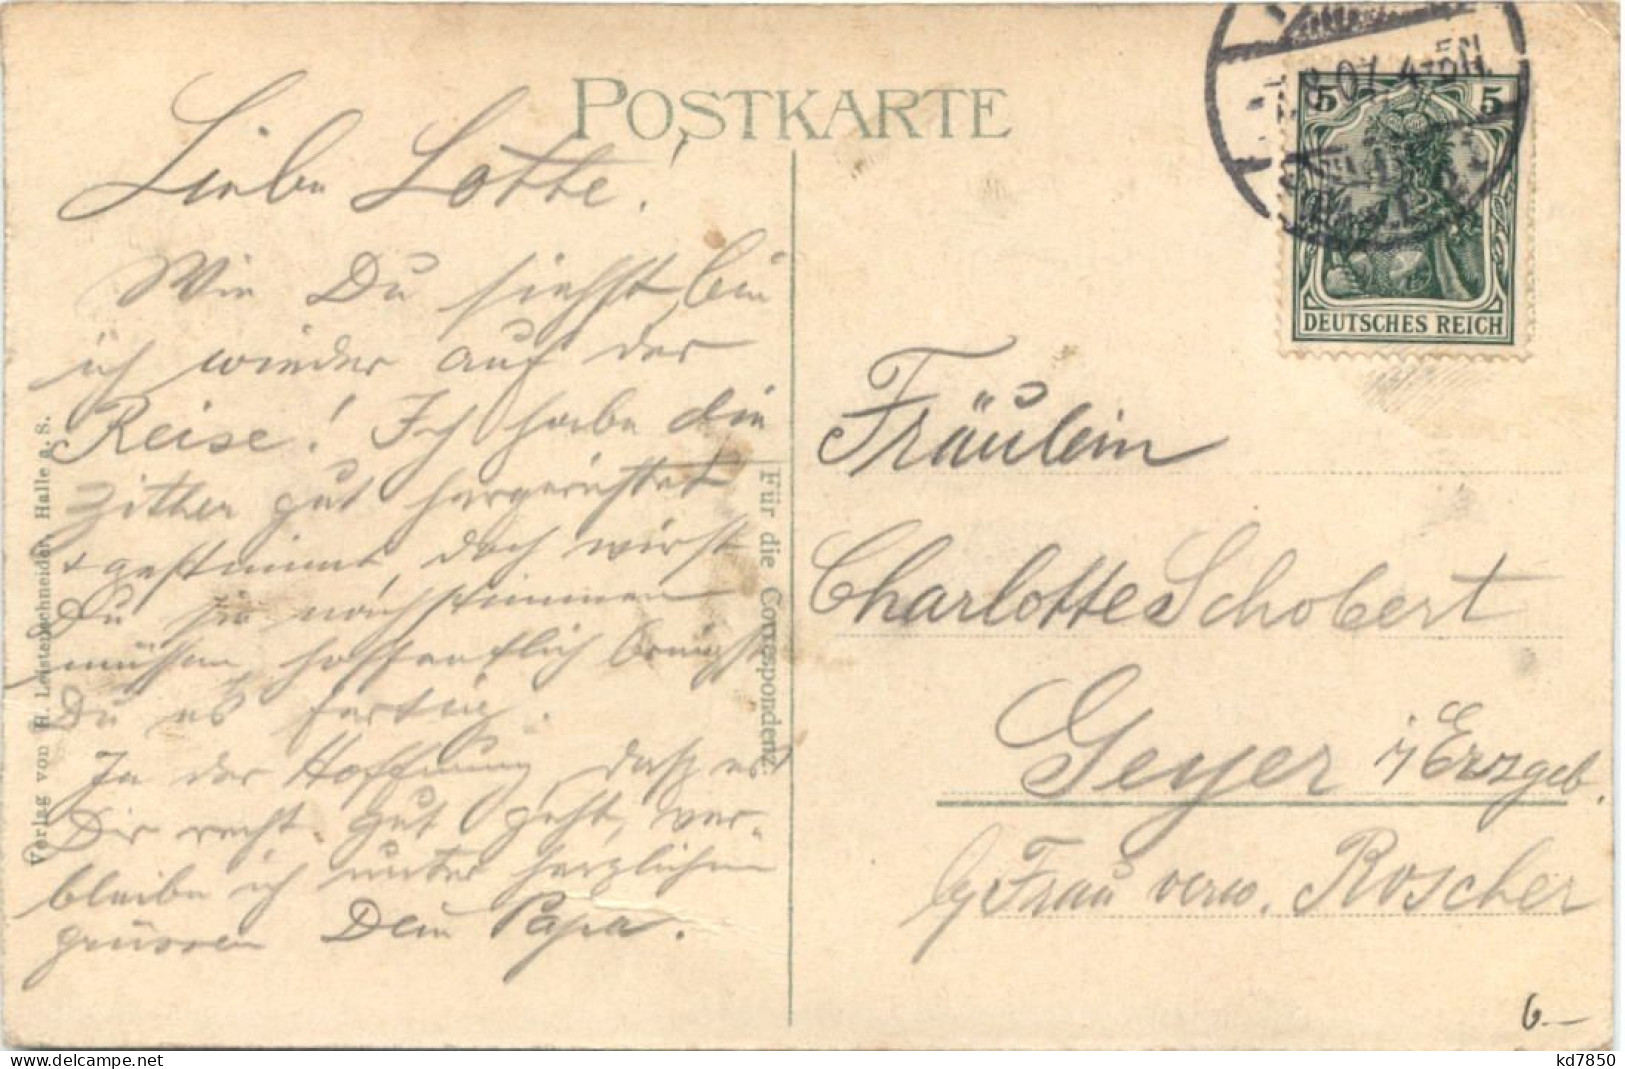 POSTKARTE
Liebe Lotte!
Wie Du siehst, bin
ich wieder auf der
Reise! Ich habe die
Zither gut hergerichtet
+ gestimmt doch wirst
Du sie nachstimmen
müssen, hoffentlich bringst
Du es fertig.
In der Hoffnung, daß es
Dir recht gut geht, ver-
bleibe ich unter herzlichen
grüssen Dein Papa.
Verlag von H. Leistenschneider, Halle a. S.
Für die Correspondenz.
8.07. 4-5N.
5 5
DEUTSCHES REICH
Fräulein
Charlotte Schobert
Geyer i/Erzgeb.
b/ Frau verw. Roscher
6.—
kd7850